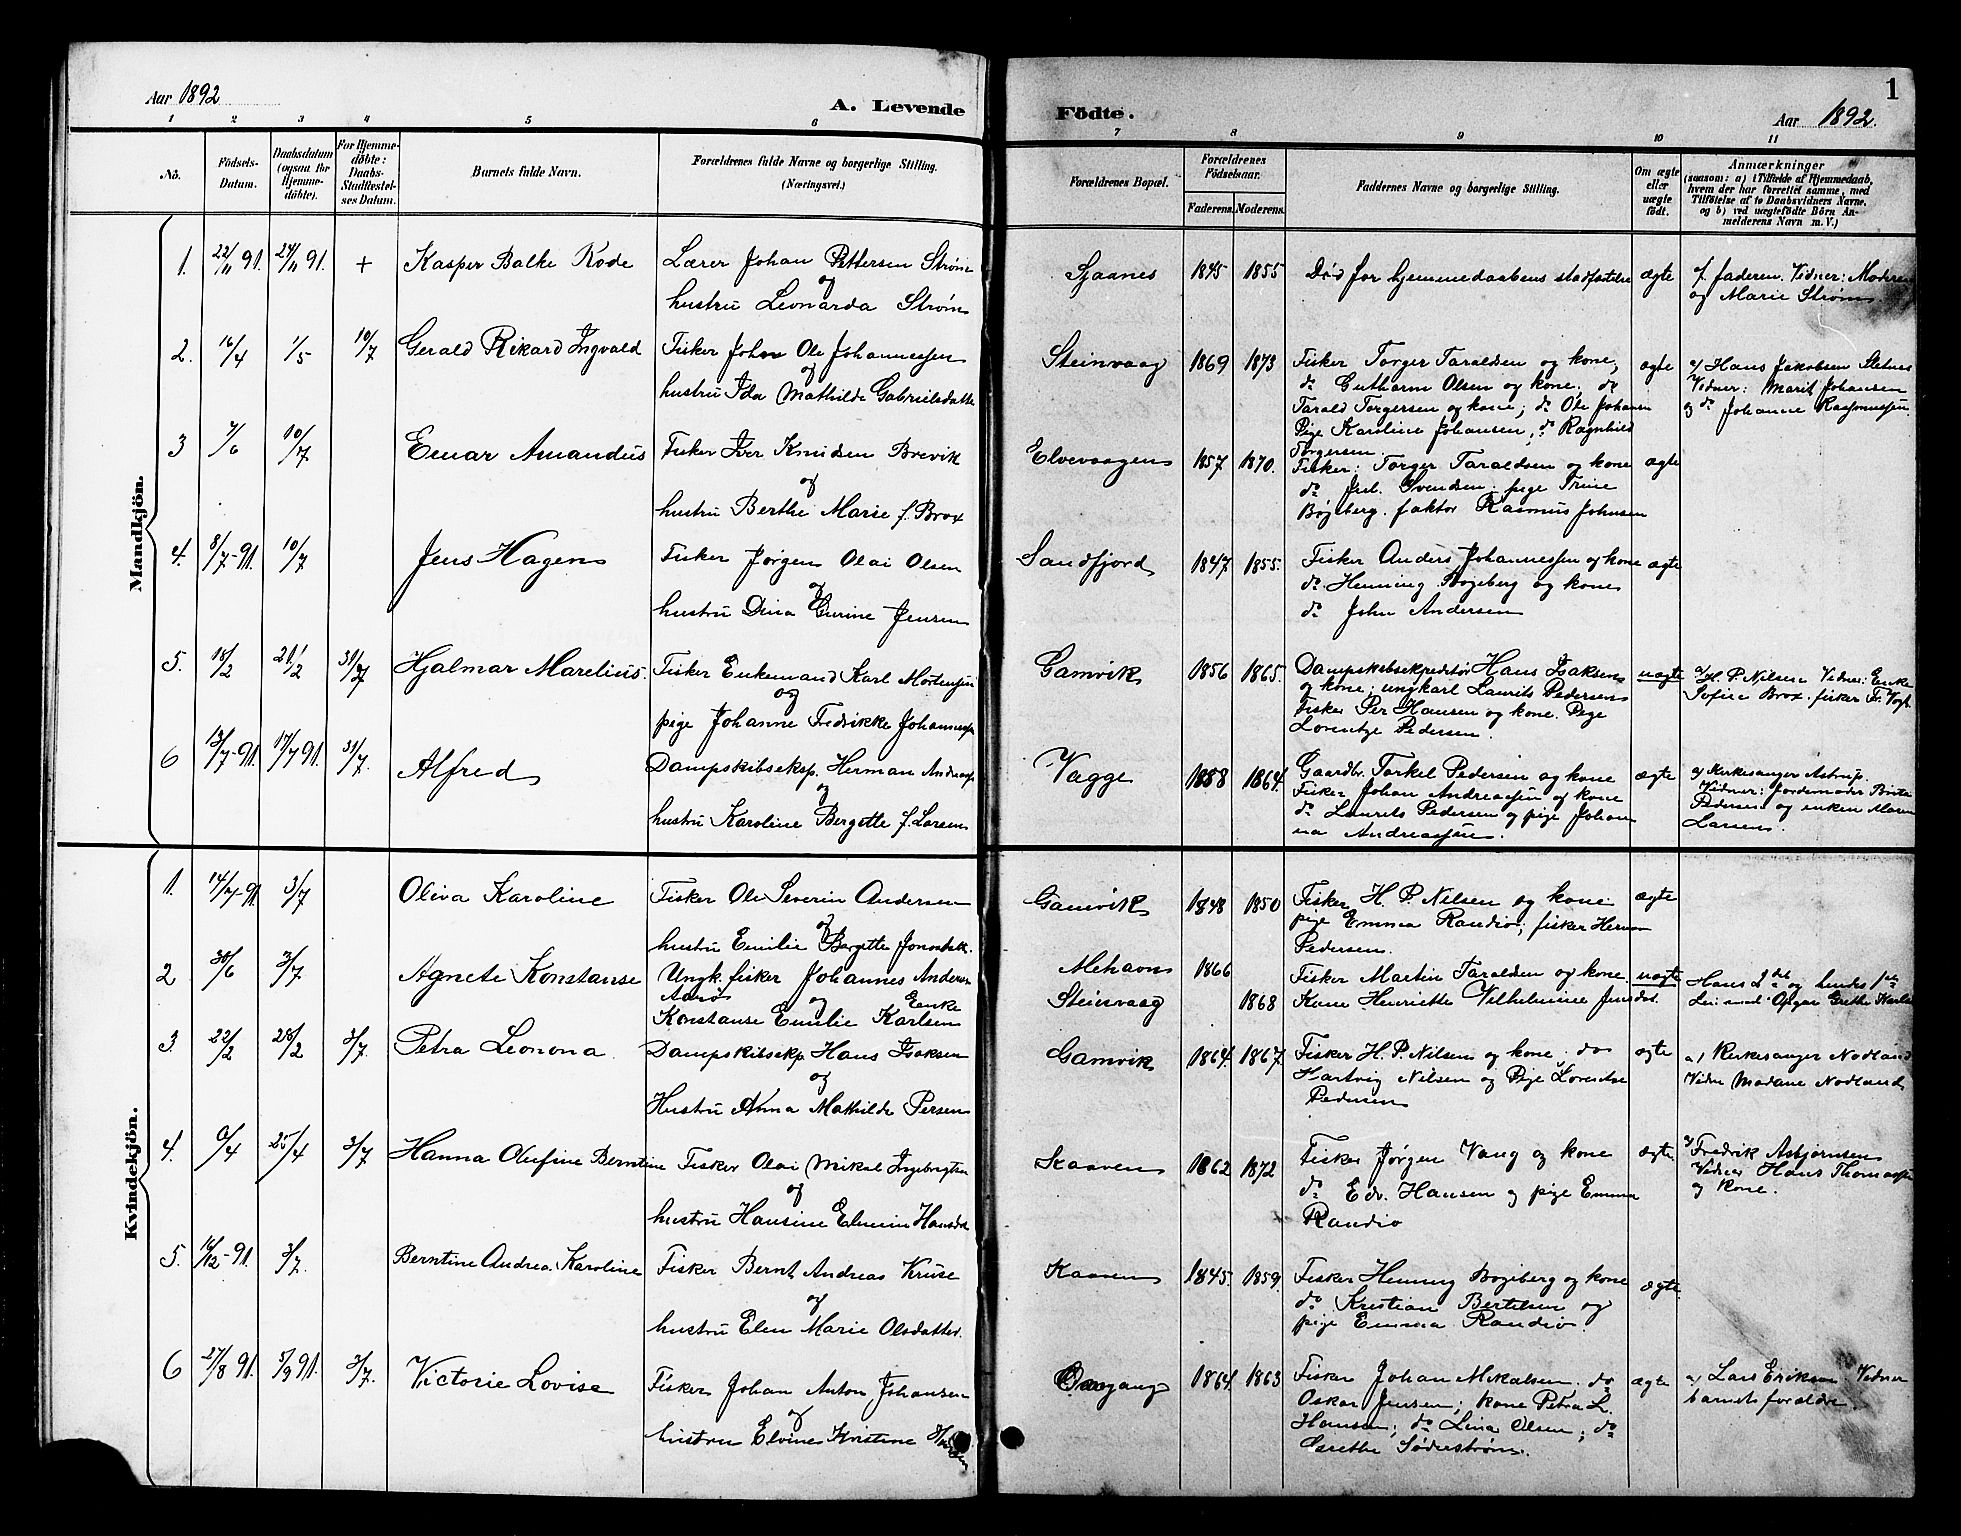 Aar 1892
A. Levende
1 2 3 4 5 6
No.
Födsels-
Datum.
Daabsdatum
(ogsaa for
Hjemme-
döbte).
For Hjemme-
döbte:
Daabs-
Stadfæstel-
ses Datum.
Barnets fulde Navn.
Forældrenes fulde Navne og borgerlige Stilling.
(Næringsvei.)
Mandkjön.
1. 22/11 91. 24/11 91. + Kasper Balke Rode Lærer Johan Pettersen Strøm
og
hustru Leonarda Strøm
2. 16/4 1/5 10/7 Gerald Rikard Ingvald Fisker John Ole Johannessen
og
hustru Ida Mathilde Gabrielsdatte
3 7/6 10/7 Einar Amandus Fisker Iver Knudsen Brevik
og
hustru Berthe Marie f. Brox
4. 8/7-91. 10/7 Jens Hagen Fisker Jørgen Olai Olsen
og
hustru Dina Gurine Jensen
5. 18/2 21/2 31/7 Hjalmar Marelius. Fisker Enkemand Karl Mortensen
og
pige Johanne Fredrikke Johanness
6 13/7-91. 17/7 91. 31/7. Alfred Dampskibseksp. Herman Andreass
og
hustru Karoline Bergette f. Larsen
Kvindekjön.
1. 14/7-91. 3/7 Oliva Karoline Fisker Ole Severin Andersen
og
hustru Emilie Bergette Jonasdatt.
2 30/6 3/7 Agnete Konstanse Ungk. fisker Johannes Andersen
og Enke
Konstanse Emilie Karlsen
3. 22/2 28/2 3/7. Petra Leonona Dampskibseksp. Hans Isaksen
og
Hustru Anna Mathilde Persen
4. 6/4 25/4 3/7 Hanna Olufine Berntine Fisker Olai Mikal Ingebrigtsen
og
hustru Hansine Elmine Hansdat
5. 16/12-91. 3/7. Berntine Andrea Karoline Fisker Bernt Andreas Kruse
og
hustru Elen Marie Olsdatter.
6 27/8 91. 5/9 91. 3/7. Victorie Lovise Fisker Johan Anton Johansen
og
hustru Elvine Kristine
1
Födte.
Aar 1892.
7 8 9 10 11
Forældrenes Bopæl.
Forældrenes
Födselsaar.
Faderens. Moderens.
Faddernes Navne og borgerlige Stilling.
Om ægte
eller
uægte
födt.
Anmærkninger
(saasom: a) i Tilfælde af Hjemmedaab,
hvem der har forrettet samme, med
Tilföielse af to Daabsvidners Navne,
og b) ved uægtefödte Börn An-
melderens Navn m. V.)
Sjaanes 1845 1855 Død før hjemmedaabens stadfæstelse ægte af faderen. Vidner: Moderen
og Marie Strøm.
Steinvaag 1869 1873 Fisker Torger Taraldsen og kone, ægte a/ Hans Jakobsen Stetnes
do Guthorm Olsen og kone; do Vidner: Marit Johansen
Tarald Torgersen og kone; do Ole Johansen og do Johanne Rasmussen.
Pige Karoline Johansen; do Ragnhild
Torgersen.
Elvevaagen 1857 1870. Fisker: Torger Taraldsen og kone ægte
do Svendsen. pige Trine
Bøgeberg. faktor Rasmus Johnsen
Sandfjord 1847. 1855. Fisker Anders Johannessen og kone ægte
do Henning Bogeberg og kone
do John Andersen
Gamvik 1856 1865. Dampskibsekspeditør Hans Isaksen uægte a/ H. P. Nilsen Vidner: Enke
og kone; ungkarl Laurits Pedersen Sofie Brox. fisker Fr. Vogt
Fisker Per Hansen og kone. Pige
Lorentze Pedersen.
Vagge 1858 1864. Gaardbr. Torkel Pedersen og kone ægte a/ Kirkesanger Astrup.
Fisker Johan Andreassen og kone Vidner: Jordemoder Berit
do Laurits Pedersen og pige Johan Pedersen og enken Maren
na Andreassen. Larsen.
Gamvik 1848 1850 Fisker H. P. Nilsen og kone ægte
pige Emma Randio; fisker Herman
Pedersen.
Mehavn 1866 Fisker Martin Taraldsen og kone uægte Hans 2det og hendes 1ste
Steinvaag 1868 Kone Henriette Vilhelmine Jensdat. Opgav Grethe Karls
Gamvik 1864. 1867. Fisker H. P. Nilsen og kone; do ægte a/ Kirkesanger Nodland
Hartvig Nilsen og Pige Lorentse Vidne Madame Nodland
Pedersen
Kaaven 1862 1872 Fisker Jørgen Vang og kone ægte. a/ Fredrik Asbjørnsen
do Edv. Hansen og pige Emma Vidner Hans Thomassen
Randio og Kone.
Kaaven 1845. 1859. Fisker Henning Bogeberg og kone ægte.
do Kristian Bertelsen og
pige Emma Randio.
Omgang 1864. 1863 Fisker Johan Mikalsen. do ægte a/ Lars Eriksen Vidner
Oskar Jensen; kone Petra L. barnets forældre.
Hansen; do Lina Olsen; do
Grethe Söderström.